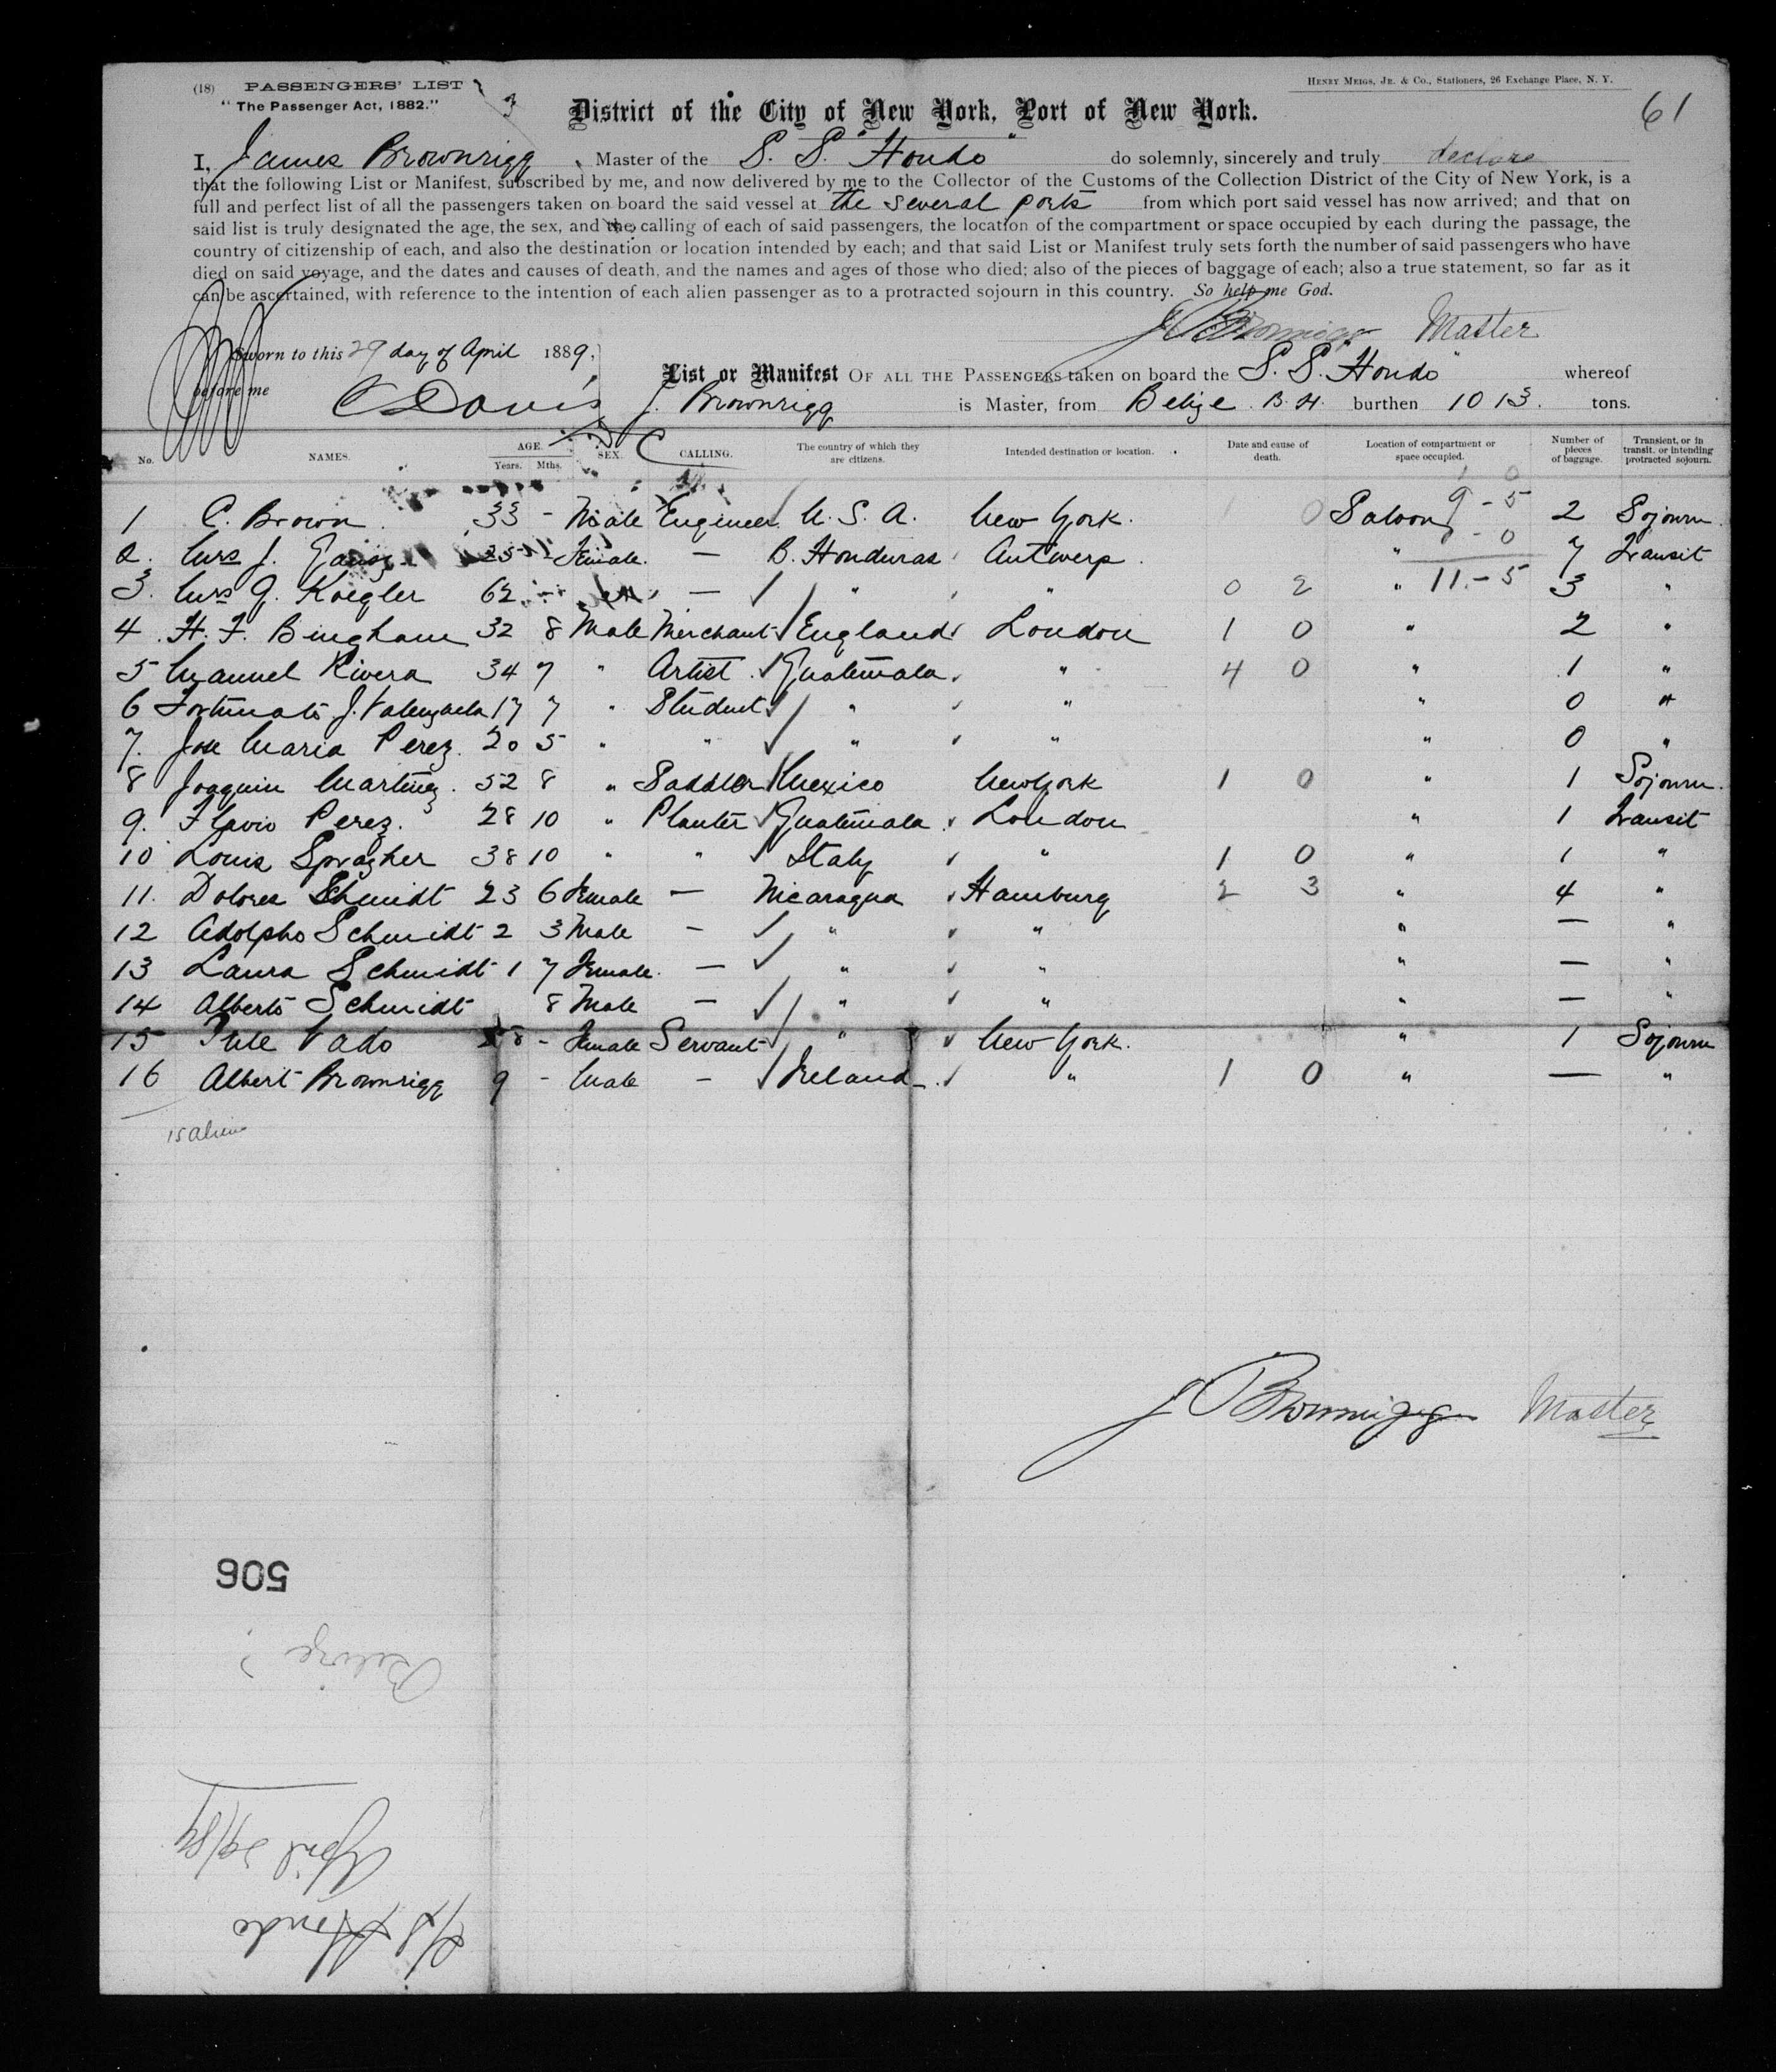 (18) PASSENGERS' LIST
"The Passenger Act, 1882."
3
HENRY MEIGS, JR. & CO., Stationers, 26 Exchange Place, N. Y.
61
District of the City of New York, Port of New York.
I, James Brownrigg, Master of the S. S. "Hondo" do solemnly, sincerely and truly declare
that the following List or Manifest, subscribed by me, and now delivered by me to the Collector of the Customs of the Collection District of the City of New York, is a
full and perfect list of all the passengers taken on board the said vessel at the several ports from which port said vessel has now arrived; and that on
said list is truly designated the age, the sex, and the calling of each of said passengers, the location of the compartment or space occupied by each during the passage, the
country of citizenship of each, and also the destination or location intended by each; and that said List or Manifest truly sets forth the number of said passengers who have
died on said voyage, and the dates and causes of death, and the names and ages of those who died; also of the pieces of baggage of each; also a true statement, so far as it
can be ascertained, with reference to the intention of each alien passenger as to a protracted sojourn in this country. So help me God.
J Brownrigg Master
Sworn to this 29 day of April 1889,
before me C Davis
List or Manifest OF ALL THE PASSENGERS taken on board the S. S. "Hondo" whereof
J. Brownrigg is Master, from Belize B. H. burthen 1013. tons.
No. NAMES. AGE. Years. Mths. SEX. CALLING. The country of which they are citizens. Intended destination or location. Date and cause of death. Location of compartment or space occupied. Number of pieces of baggage. Transient, or in transit, or intending protracted sojourn.
1 C. Brown 33 - Male Engineer U. S. A. New York. 0 Saloon 9 - 5 2 Sojourn.
2. Mrs J. 25 - Female. — B. Honduras Antwerp " - 0 7 Transit
3. Mrs G. Koegler 62 - " — " " 0 2 " 11 - 5 3 "
4. H. F. Bingham 32 8 Male Merchant England London 1 0 " 2 "
5 Manuel Rivera 34 7 " Artist Guatemala " 4 0 " 1 "
6 Fortunato J. Valenzuela 17 7 " Student " " " 0 "
7. Jose Maria Perez. 20 5 " " " " " 0 "
8 Joaquin Martinez. 52 8 " Saddler Mexico New York 1 0 " 1 Sojourn.
9. Flavio Perez. 28 10 " Planter Guatemala. London " 1 Transit
10 Louis 38 10 " " Italy " 1 0 " 1 "
11. Dolores Schmidt 23 6 Female — Nicaragua Hamburg 2 3 " 4 "
12 Adolpho Schmidt 2 3 Male — " " " — "
13 Laura Schmidt 1 7 Female. — " " " — "
14 Alberto Schmidt 8 Male — " " " — "
15 Vado 8 - Female Servant " New York. " 1 Sojourn
16 Albert Brownrigg 9 - Male — Ireland " 1 0 " — "
15 alien
J Brownrigg Master
506
Belize
April 29/89
S/S Hondo